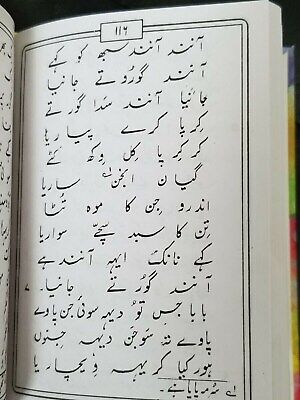 ۱۱۶
آنند آنند سبھ کو کہے
آنند گورُو تے جانیا
جانیا آنند سدا گور تے
کِرپا کرے پیاریا
کر کرپا کِل وِکھ کٹے
گیان انجن لے ساریا
اندرو جِن کا موہ تُٹا
تِن کا سبد سچّے سواریا
کہے نانک ایہہ آنند ہے
آنند گورُ تے جانیا۔ ۷
بابا جِس تُو دیہہ سوئی جن پاوے
پاوے تہ سو جن دیہہ جِنوں
ہور کیا کر یہہ ویچاریا